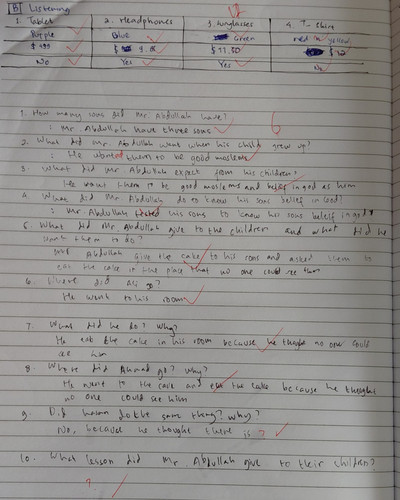 B Listening
1. Tablet 2. Headphones 3. Sunglasses 4. T-shirt
Purple Blue Green red yellow
$ 199 $ $ 11.50 $
No Yes Yes No
1. How many sons did Mr. Abdullah have?
: Mr. Abdullah have three sons
2. What did Mr. Abdullah want when his child grew up?
: He wanted them to be good moslems
3. What did Mr Abdullah expect from his children?
He want them to be good moslems and belief in god as him
4. What did Mr Abdullah do to know his sons belief in God?
: Mr Abdullah tested his sons to know his sons belief in god
5. What did Mr Abdullah give to the children and what did he
want them to do?
Mr Abdullah give the cake to his sons and asked them to
eat the cake in the place that no one could see them
6. Where did Ali go?
He went to his room
7. What did he do? Why?
He eat the cake in his room because he thought no one could
see him
8. Where did Ahmad go? Why?
He went to the cave and eat the cake because he thought
no one could see him
9. Did hasan do the same thing? Why?
No, because he thought there is ?
10. What lesson did Mr Abdullah give to their children?
?